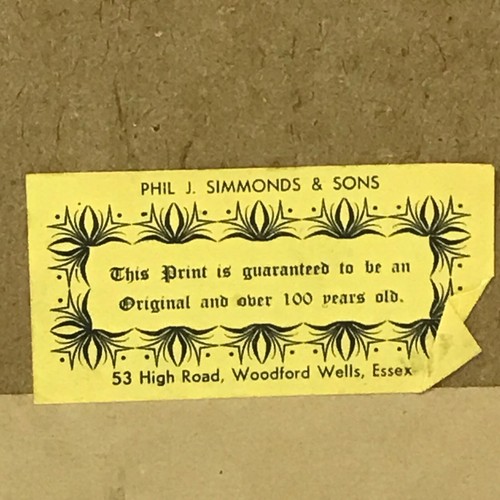 PHIL J. SIMMONDS & SONS
This Print is guaranteed to be an
Original and over 100 years old.
53 High Road, Woodford Wells, Essex